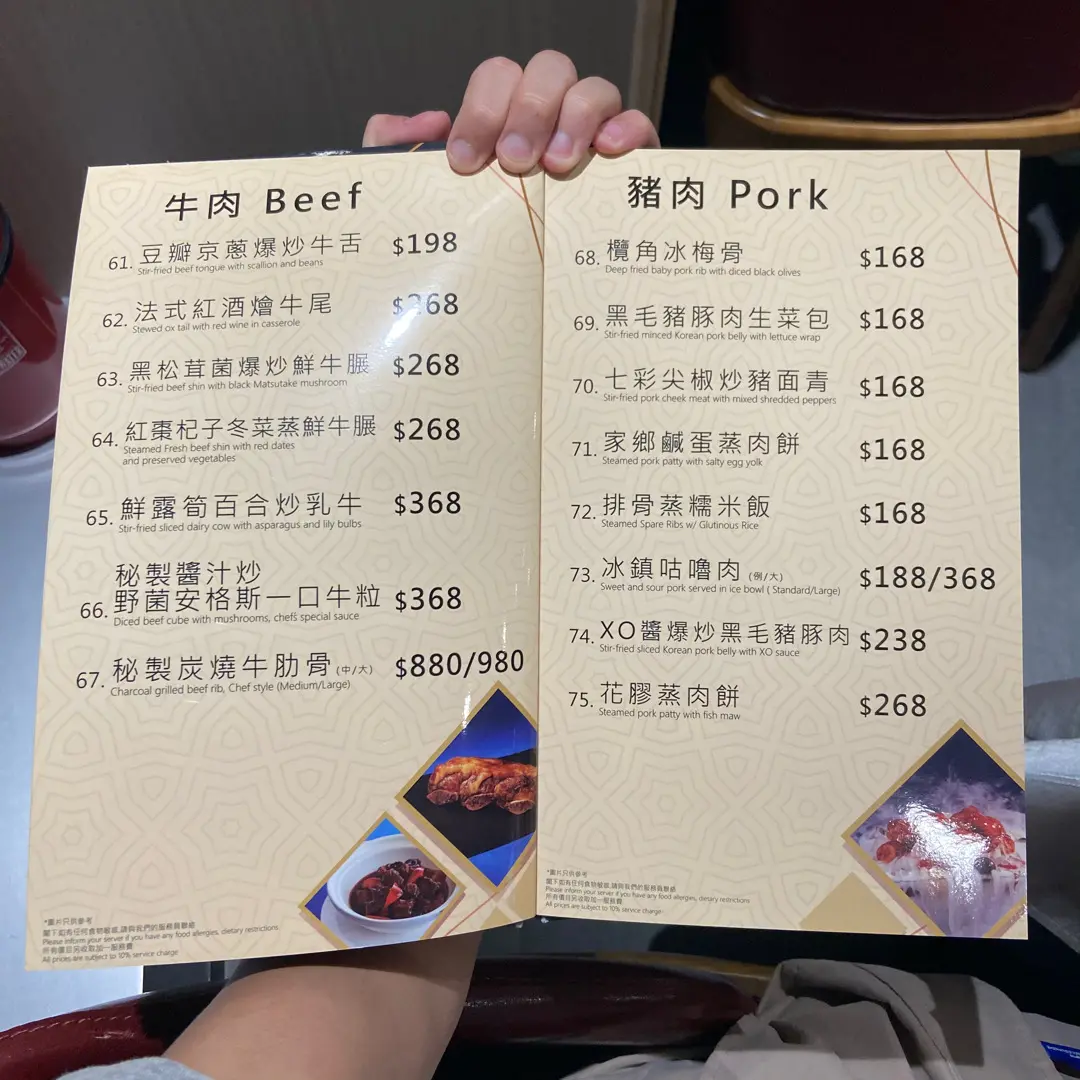 牛肉 Beef
61. 豆瓣京蔥爆炒牛舌 $198
Stir-fried beef tongue with scallion and beans
62. 法式紅酒燴牛尾
Stewed ox tail with red wine in casserole
63. 黑松茸菌爆炒鮮牛𦟌 $268
Stir-fried beef shin with black Matsutake mushroom
64. 紅棗杞子冬菜蒸鮮牛𦟌 $268
Steamed Fresh beef shin with red dates
and preserved vegetables
65. 鮮露筍百合炒乳牛 $368
Stir-fried sliced dairy cow with asparagus and lily bulbs
秘製醬汁炒
66. 野菌安格斯一口牛粒 $368
Diced beef cube with mushrooms, chef's special sauce
67. 秘製炭燒牛肋骨 (中/大) $880/980
Charcoal grilled beef rib, Chef style (Medium/Large)
*圖片只供參考
閣下如有任何食物敏感,請與我們的服務員聯絡
Please inform your server if you have any food allergies, dietary restrictions
所有價目另收取加一服務費
All prices are subject to 10% service charge
豬肉 Pork
68. 欖角冰梅骨 $168
Deep fried baby pork rib with diced black olives
69. 黑毛豬豚肉生菜包 $168
Stir-fried minced Korean pork belly with lettuce wrap
70. 七彩尖椒炒豬面青 $168
Stir-fried pork cheek meat with mixed shredded peppers
71. 家鄉鹹蛋蒸肉餅 $168
Steamed pork patty with salty egg yolk
72. 排骨蒸糯米飯 $168
Steamed Spare Ribs w/ Glutinous Rice
73. 冰鎮咕嚕肉 (例/大) $188/368
Sweet and sour pork served in ice bowl ( Standard/Large)
74. XO醬爆炒黑毛豬豚肉 $238
Stir-fried sliced Korean pork belly with XO sauce
75. 花膠蒸肉餅 $268
Steamed pork patty with fish maw
*圖片只供參考
閣下如有任何食物敏感,請與我們的服務員聯絡
Please inform your server if you have any food allergies, dietary restrictions
所有價目另收取加一服務費
All prices are subject to 10% service charge